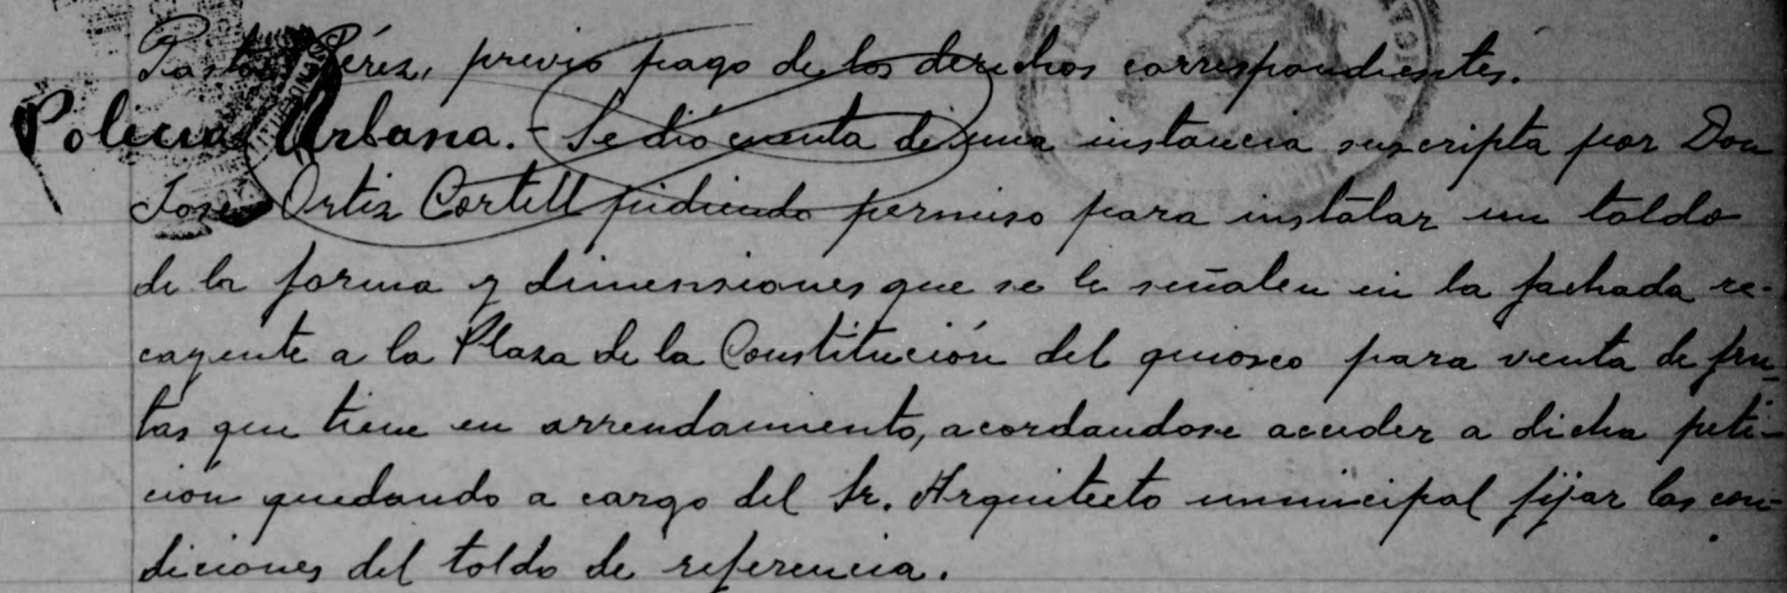 Pastor Pérez, previo pago de los derechos correspondientes.
Policia Urbana. - Se dió cuenta de una instancia suscripta por Don
José Ortiz Cortell pidiendo permiso para instalar un toldo
de la forma y dimensiones que se le señalen en la fachada re-
cayente a la Plaza de la Constitución del quiosco para venta de fru-
tas que tiene en arrendamiento, acordandose acceder a dicha peti-
ción quedando a cargo del Sr. Arquitecto municipal fijar las con-
diciones del toldo de referencia.